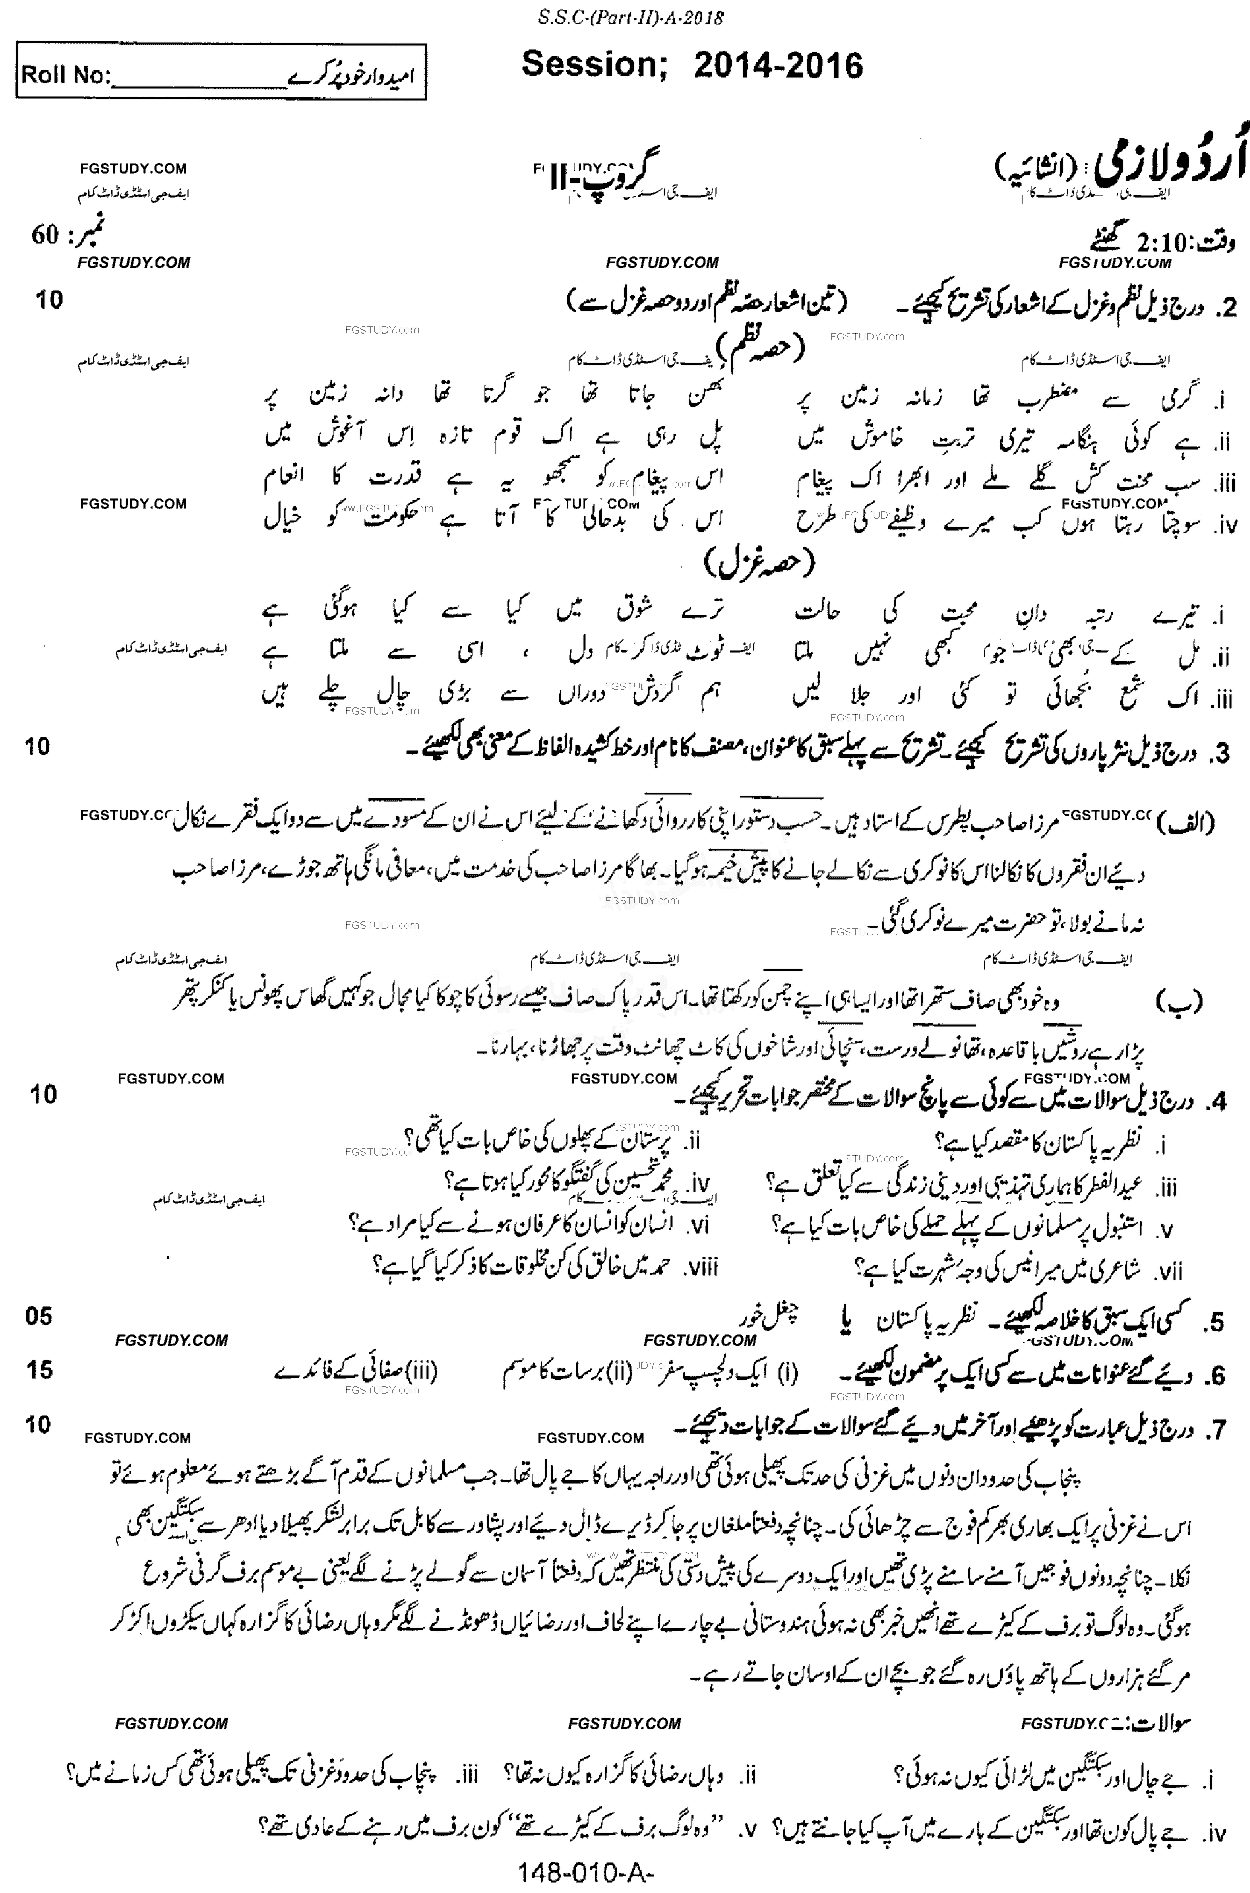 S.S.C-(Part-II)-A-2018
Roll No:____________ امیدوار خود پُر کرے
Session; 2014-2016
اُردُو لازمی: (انشائیہ) گروپ-II
FGSTUDY.COM
ایف جی اسٹڈی ڈاٹ کام
وقت: 2:10 گھنٹے نمبر: 60
FGSTUDY.COM FGSTUDY.COM FGSTUDY.COM
2. درج ذیل نظم و غزل کے اشعار کی تشریح کیجئے۔ (تین اشعار حصہ نظم اور دو حصہ غزل سے) 10
(حصہ نظم)
i. گرمی سے مضطرب تھا زمانہ زمین پر بھن جاتا تھا جو گرتا تھا دانہ زمین پر
ii. ہے کوئی ہنگامہ تیری تربتِ خاموش میں پل رہی ہے اک قوم تازہ اِس آغوش میں
iii. سب محنت کش گلے ملے اور ابھرا اک پیغام اس پیغام کو سمجھو یہ ہے قدرت کا انعام
iv. سوچتا رہتا ہوں کب میرے وظیفے کی طرح اس کی بدحالی کا آتا ہے حکومت کو خیال
(حصہ غزل)
i. تیرے رتبہ دانِ محبت کی حالت ترے شوق میں کیا سے کیا ہوگئی ہے
ii. مل کے بھی جو کبھی نہیں ملتا ٹوٹ کر دل ، اسی سے ملتا ہے
iii. اک شمع بُجھائی تو کئی اور جلا لیں ہم گردشِ دوراں سے بڑی چال چلے ہیں
3. درج ذیل نثر پاروں کی تشریح کیجئے۔ تشریح سے پہلے سبق کا عنوان، مصنف کا نام اور خط کشیدہ الفاظ کے معنی بھی لکھیئے۔ 10
(الف) مرزا صاحب پطرس کے استاد ہیں۔ حسب دستور اپنی کارروائی دکھانے کے لیئے اس نے ان کے مسودے میں سے دو ایک فقرے نکال
دیئے ان فقروں کا نکالنا اس کا نوکری سے نکالے جانے کا پیش خیمہ ہوگیا۔ بھاگا مرزا صاحب کی خدمت میں، معافی مانگی ہاتھ جوڑے، مرزا صاحب
نہ مانے بولا، تو حضرت میرے نوکری گئی۔
(ب) وہ خود بھی صاف ستھرا تھا اور ایسا ہی اپنے چمن کو رکھتا تھا۔ اس قدر پاک صاف جیسے رسوئی کا چوکا کیا مجال جو کہیں گھاس پھونس یا کنکر پتھر
پڑا رہے روشیں با قاعدہ، تھانولے درست، سنچائی اور شاخوں کی کاٹ چھانٹ وقت پر جھاڑنا، بہارنا۔
FGSTUDY.COM FGSTUDY.COM FGSTUDY.COM
4. درج ذیل سوالات میں سے کوئی سے پانچ سوالات کے مختصر جوابات تحریر کیجئے۔ 10
i. نظریہ پاکستان کا مقصد کیا ہے؟ ii. پرستان کے پھلوں کی خاص بات کیا تھی؟
iii. عیدالفطر کا ہماری تہذیبی اور دینی زندگی سے کیا تعلق ہے؟ iv. محمد تحسین کی گفتگو کا محور کیا ہوتا ہے؟
v. استنبول پر مسلمانوں کے پہلے حملے کی خاص بات کیا ہے؟ vi. انسان کو انسان کا عرفان ہونے سے کیا مراد ہے؟
vii. شاعری میں میر انیس کی وجۂ شہرت کیا ہے؟ viii. حمد میں خالق کی کن مخلوقات کا ذکر کیا گیا ہے؟
5. کسی ایک سبق کا خلاصہ لکھیئے۔ نظریہ پاکستان یا چغل خور 05
FGSTUDY.COM FGSTUDY.COM
6. دیئے گئے عنوانات میں سے کسی ایک پر مضمون لکھیئے۔ (i) ایک دلچسپ سفر (ii) برسات کا موسم (iii) صفائی کے فائدے 15
7. درج ذیل عبارت کو پڑھیئے اور آخر میں دیئے گئے سوالات کے جوابات دیجئے۔ 10
FGSTUDY.COM FGSTUDY.COM
پنجاب کی حدود ان دنوں میں غزنی کی حد تک پھیلی ہوئی تھی اور راجہ یہاں کا جے پال تھا۔ جب مسلمانوں کے قدم آگے بڑھتے ہوئے معلوم ہوئے تو
اس نے غزنی پر ایک بھاری بھر کم فوج سے چڑھائی کی۔ چنانچہ دفعتاً ملغان پر جا کر ڈیرے ڈال دیئے اور پشاور سے کابل تک برابر لشکر پھیلا دیا ادھر سے سبکتگین بھی
نکلا۔ چنانچہ دونوں فوجیں آمنے سامنے پڑی تھیں اور ایک دوسرے کی پیش دستی کی منتظر تھیں کہ دفعتاً آسمان سے گولے پڑنے لگے یعنی بے موسم برف گرنی شروع
ہوگئی۔ وہ لوگ تو برف کے کیڑے تھے انھیں خبر بھی نہ ہوئی ہندوستانی بے چارے اپنے لحاف اور رضائیاں ڈھونڈنے لگے مگر وہاں رضائی کا گزارہ کہاں سیکڑوں اکڑ کر
مر گئے ہزاروں کے ہاتھ پاؤں رہ گئے جو بچے ان کے اوسان جاتے رہے۔
سوالات:۔ FGSTUDY.COM FGSTUDY.COM
i. جے چال اور سبکتگین میں لڑائی کیوں نہ ہوئی؟ ii. وہاں رضائی کا گزارہ کیوں نہ تھا؟ iii. پنجاب کی حدود غزنی تک پھیلی ہوئی تھی کس زمانے میں؟
iv. جے پال کون تھا اور سبکتگین کے بارے میں آپ کیا جانتے ہیں؟ v. "وہ لوگ برف کے کیڑے تھے" کون برف میں رہنے کے عادی تھے؟
148-010-A-